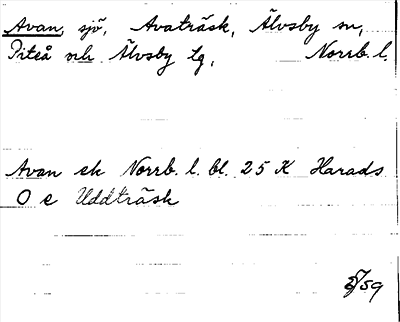 Avan, sjö, Avaträsk, Älvsby sn,
Piteå och Älvsby tg, Norrb. l.
Avan ek Norrb. l. bl. 25 K Harads
O e Uddträsk